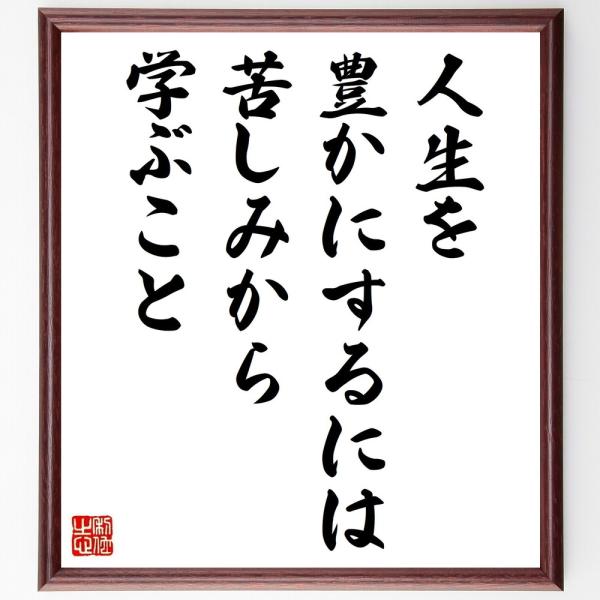 人生を
豊かにするには
苦しみから
学ぶこと